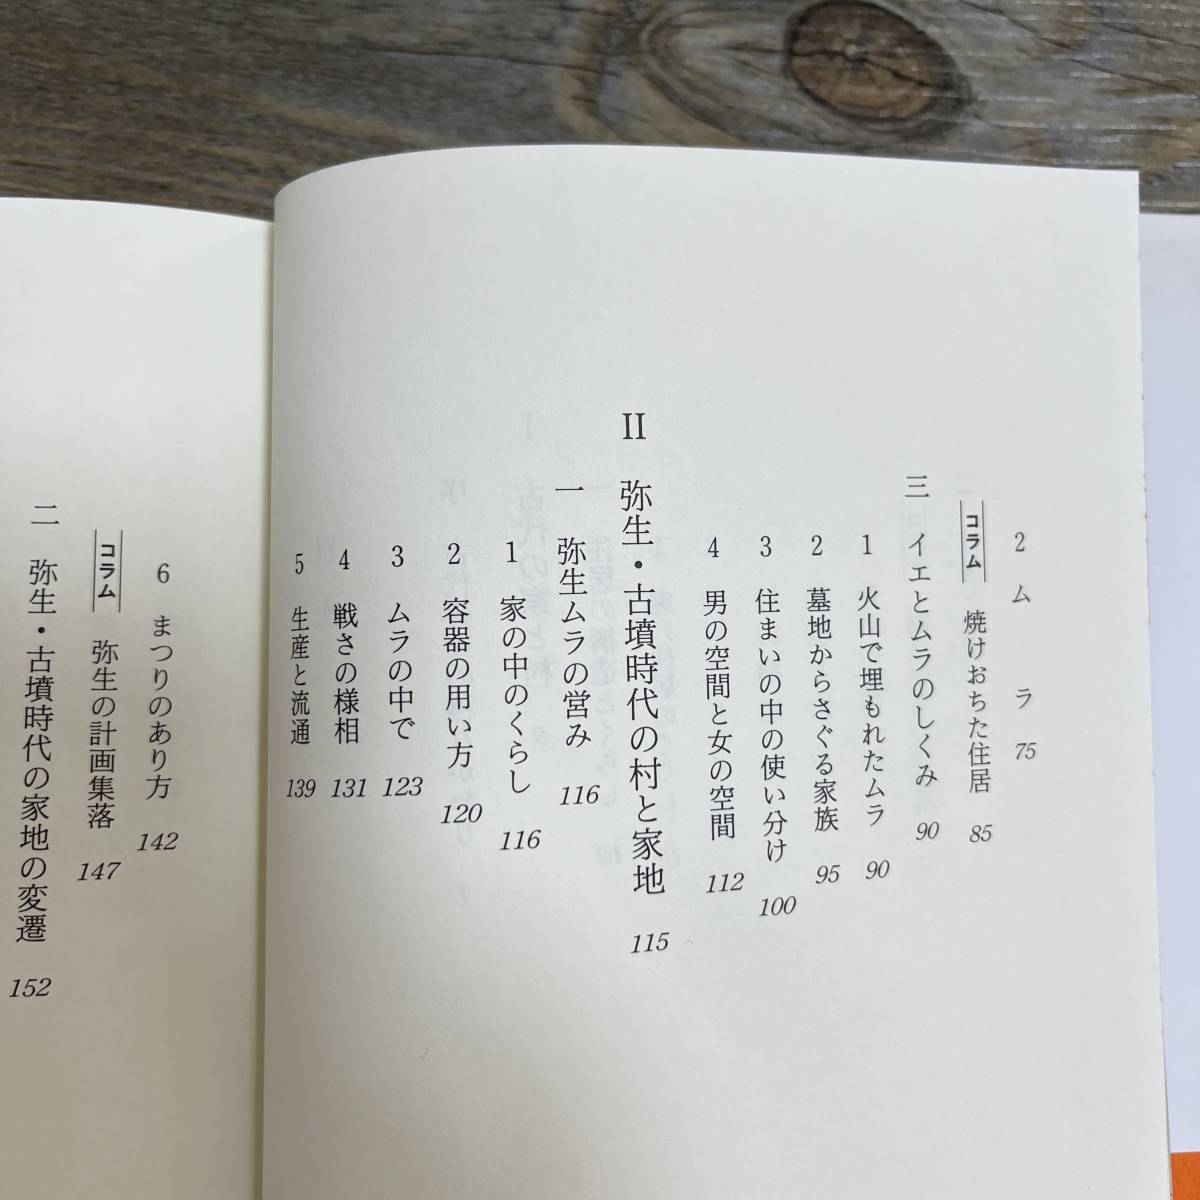 2 ムラ 75
コラム 焼けおちた住居 85
三 イエとムラのしくみ 90
1 火山で埋もれたムラ 90
2 墓地からさぐる家族 95
3 住まいの中の使い分け 100
4 男の空間と女の空間 112
II 弥生・古墳時代の村と家地 115
一 弥生ムラの営み 116
1 家の中のくらし 116
2 容器の用い方 120
3 ムラの中で 123
4 戦さの様相 131
5 生産と流通 139
6 まつりのあり方 142
コラム 弥生の計画集落 147
二 弥生・古墳時代の家地の変遷 152